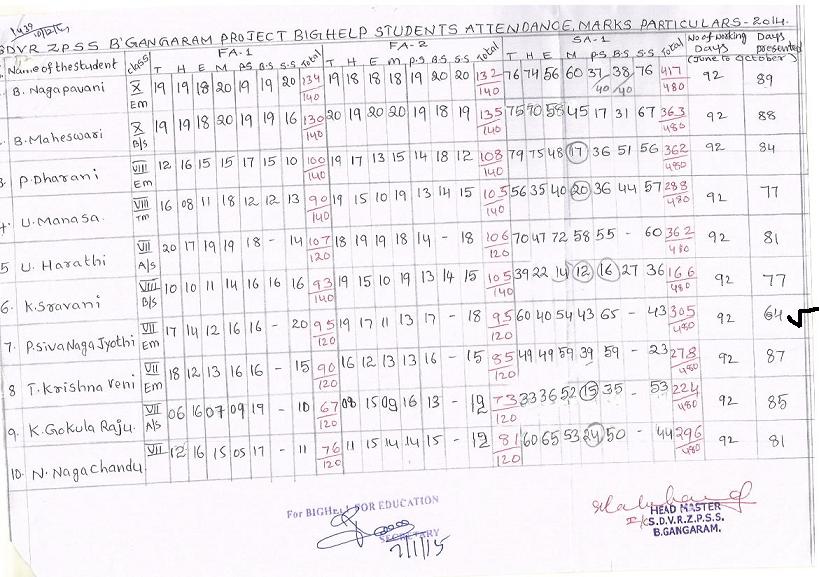 1430
10/12/14
SDVR ZPSS B'GANGARAM PROJECT BIGHELP STUDENTS ATTENDANCE, MARKS PARTICULARS-2014.
Name of the student class FA-1 T H E M P.S B.S S.S Total FA-2 T H E M P.S B.S S.S Total SA-1 T H E M P.S B.S S.S Total No of working Days Days presented (June to October)
B. Nagapavani X Em 19 19 18 20 19 19 20 134/140 19 18 18 18 19 20 20 132/140 76 74 56 60 37/40 38/40 76 417/480 92 89
B. Maheswari X B/S 19 19 18 20 19 19 16 130/140 20 19 20 20 19 18 19 135/140 75 70 58 45 17 31 67 363/480 92 88
3. P. Dharani VIII Em 12 16 15 15 17 15 10 100/140 19 17 13 15 14 18 12 108/140 79 75 48 17 36 51 56 362/480 92 84
4. U. Manasa VIII Tm 16 08 11 18 12 12 13 90/140 19 15 10 19 13 14 15 105/140 56 35 40 20 36 44 57 288/480 92 77
5 U. Harathi VII A/S 20 17 19 19 18 - 14 107/120 18 19 19 18 14 - 18 106/120 70 47 72 58 55 - 60 362/480 92 81
6. K. Sravani VIII B/S 10 10 11 14 16 16 16 93/140 19 15 10 19 13 14 15 105/140 39 22 14 12 16 27 36 166/480 92 77
7. P. Siva Naga Jyothi VII Em 17 14 12 16 16 - 20 95/120 19 17 11 13 17 - 18 95/120 60 40 54 43 65 - 43 305/480 92 64 ✓
8 T. Krishna Veni VII Em 18 12 13 16 16 - 15 90/120 16 12 13 13 16 - 15 85/120 49 49 59 39 59 - 23 278/480 92 87
9. K. Gokula Raju. VII A/S 06 16 07 09 19 - 10 67/120 08 15 09 16 13 - 12 73/120 33 36 52 15 35 - 53 224/480 92 85
10. N. Naga Chandu VII 12 16 15 05 17 - 11 76/120 11 15 14 14 15 - 12 81/120 60 65 53 24 50 - 44 296/480 92 81
For BIGHELP FOR EDUCATION
SECRETARY
2/1/15
HEAD MASTER
S.D.V.R.Z.P.S.S.
B.GANGARAM.